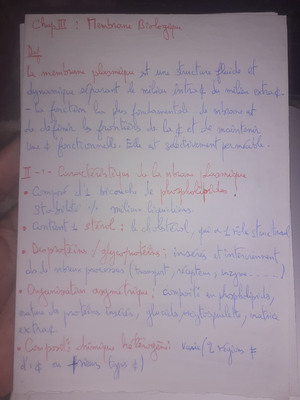 Chap III : Membrane Biologique
Def
La membrane plasmique est une structure fluide et
dynamique séparant le milieu intra¢ du milieu extra¢.
- La fonction la plus fondamentale de mbrane est
de définir les frontières de la ¢ et de maintenir
une ¢ fonctionnelle. Elle est sélectivement perméable.
II-1- Caractéristique de la mbrane plasmique
• Composé d'1 bicouche de phospholipides :
stabilité milieu
• Contient 1 stérol : le cholestérol, qui a 1 rôle structural
• Des protéines / glycoprotéines : insérées et interviennent
de processus (transport, récepteur, enzyme ......)
• Organisation asymétrique : composit° en phospholipides,
nature de protéines insérées, glucides, matrice
extra¢.
• Composit° chimique hétérogène : varie /
d'1 ¢ ou types ¢)